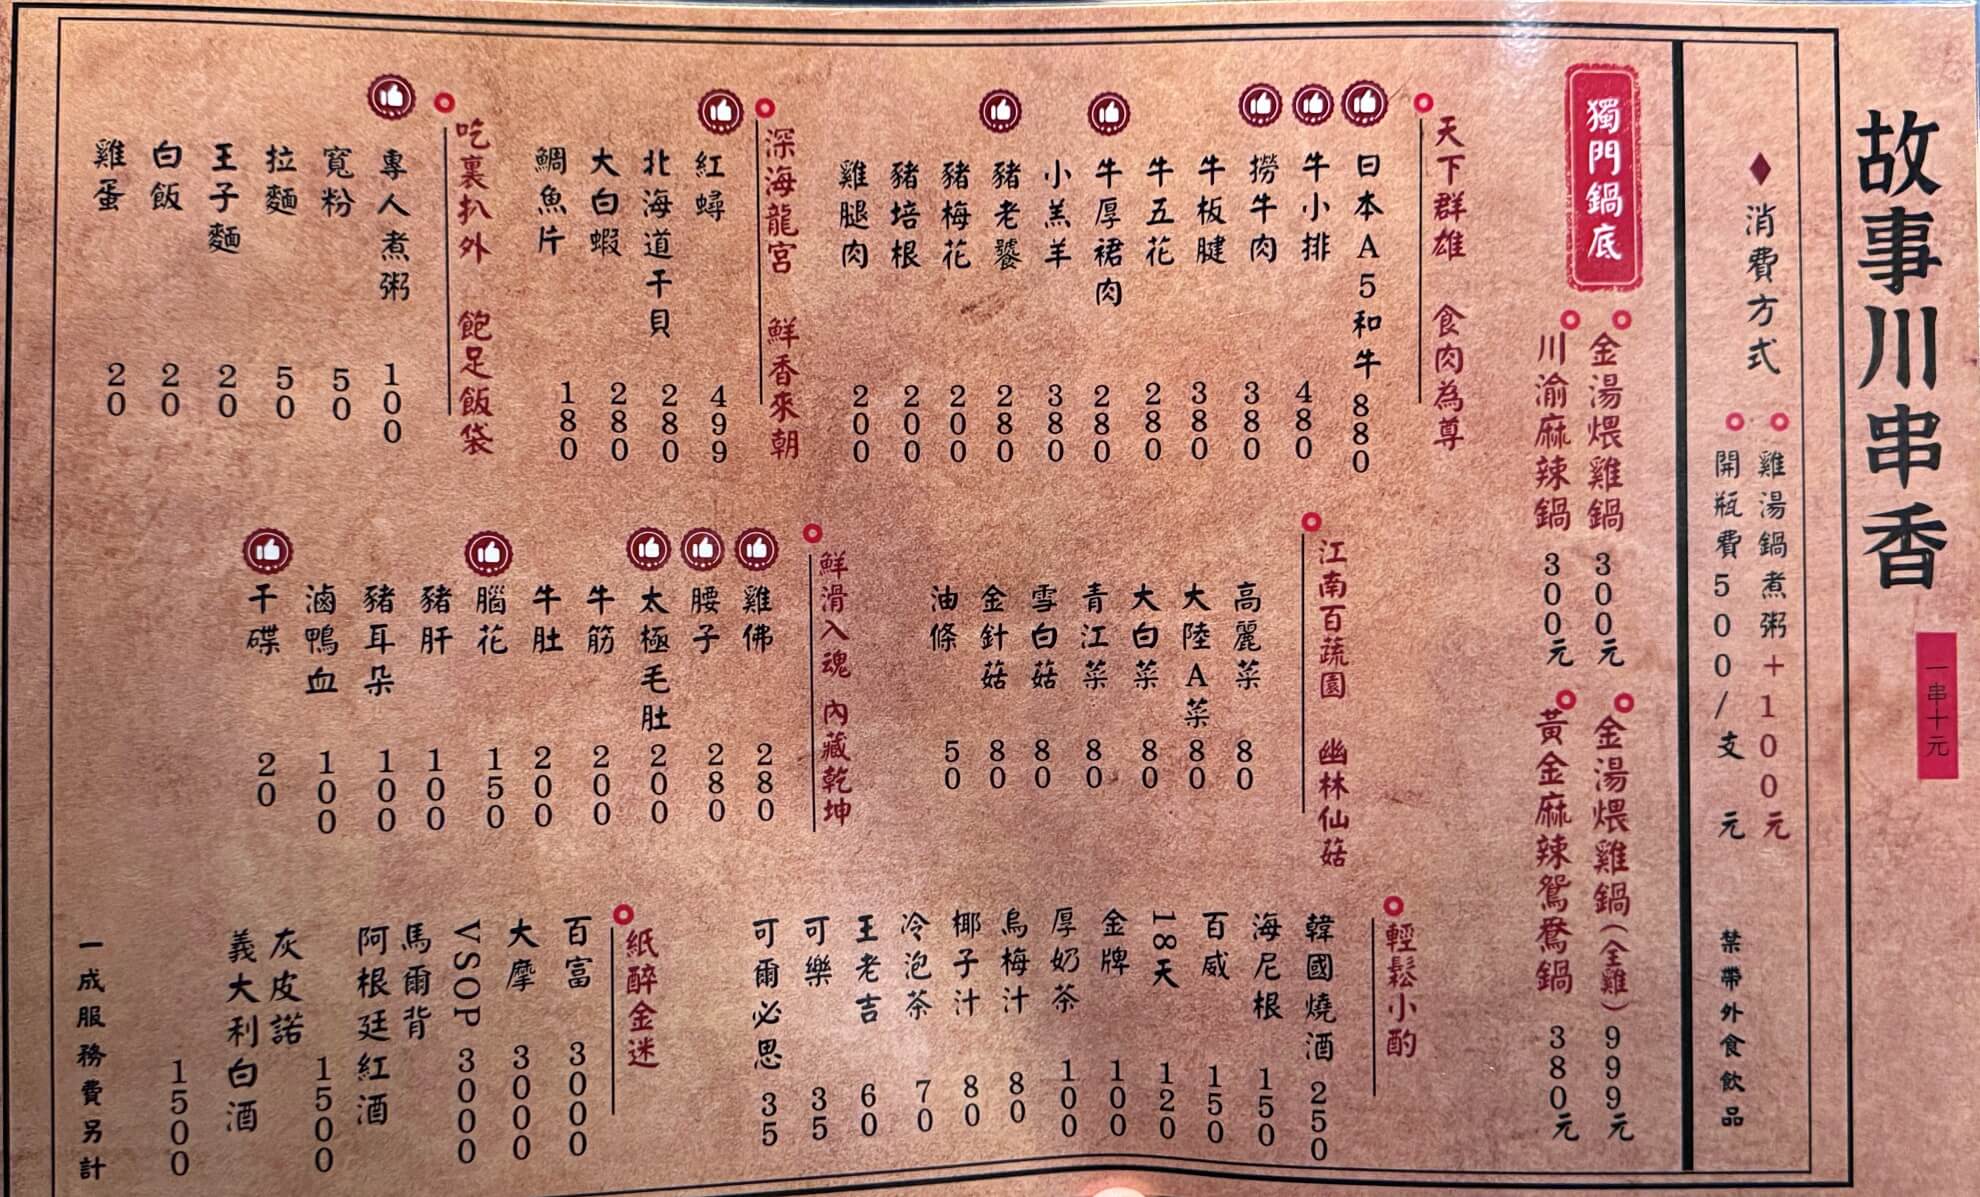 故事川串香
一串十元
消費方式
雞湯鍋煮粥+100元
開瓶費500/支 元
禁帶外食飲品
獨門鍋底
金湯煨雞鍋 300元
川渝麻辣鍋 300元
金湯煨雞鍋(全雞) 999元
黃金麻辣鴛鴦鍋 380元
天下群雄 食肉為尊
日本A5和牛 880
牛小排 480
撈牛肉 380
牛板腱 380
牛五花 280
牛厚裙肉 280
小羔羊 380
豬老饕 280
豬梅花 200
豬培根 200
雞腿肉 200
深海龍宮 鮮香來朝
紅蟳 499
北海道干貝 280
大白蝦 280
鯛魚片 180
吃裏扒外 飽足飯袋
專人煮粥 100
寬粉 50
拉麵 50
王子麵 20
白飯 20
雞蛋 20
江南百蔬園 幽林仙菇
高麗菜 80
大陸A菜 80
大白菜 80
青江菜 80
雪白菇 80
金針菇 80
油條 50
鮮滑入魂 內藏乾坤
雞佛 280
腰子 280
太極毛肚 200
牛筋 200
牛肚 200
腦花 150
豬肝 100
豬耳朵 100
滷鴨血 100
干碟 20
輕鬆小酌
韓國燒酒 250
海尼根 150
百威 150
18天 120
金牌 100
厚奶茶 100
烏梅汁 80
椰子汁 80
冷泡茶 70
王老吉 60
可樂 35
可爾必思 35
紙醉金迷
百富 3000
大摩 3000
VSOP 3000
馬爾背
阿根廷紅酒 1500
灰皮諾
義大利白酒 1500
一成服務費另計